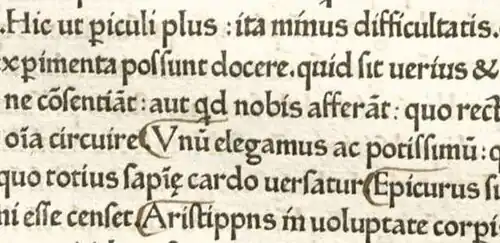 .Hic ut ꝑiculi plus : ita minus difficultatis.
xꝑimenta possunt docere. quid sit uerius &
ne cōsentiāt : aut qd nobis afferāt : quo rect
oīa circuire Vnū elegamus ac potissimū : q
quo totius sapię cardo uersatur Epicurus si
ni esse censet Aristippns in uoluptate corpi